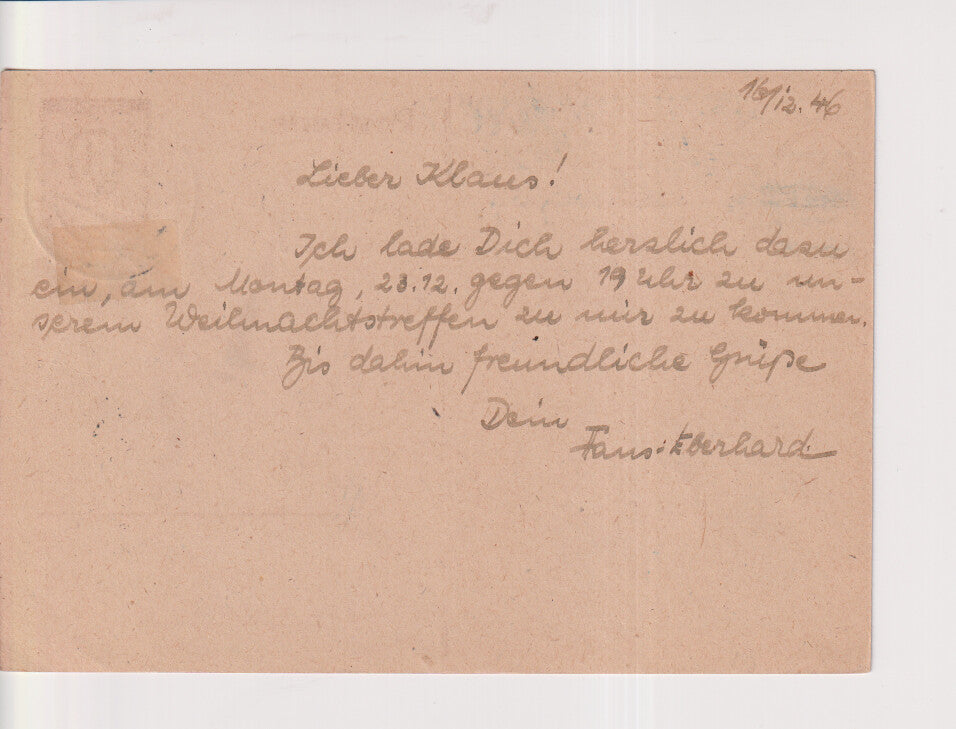 16/12.46
Lieber Klaus!
Ich lade Dich herzlich dazu
ein, am Montag, 23.12. gegen 19 Uhr zu un-
serem Weihnachtstreffen zu mir zu kommen.
Bis dahin freundliche Grüße
Dein
Hans-Eberhard